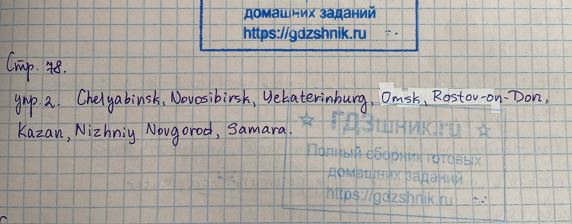 домашних заданий
https://gdzshnik.ru
Стр. 78.
упр. 2. Chelyabinsk, Novosibirsk, Yekaterinburg, Omsk, Rostov-on-Don,
Kazan, Nizhniy Novgorod, Samara.
ГДЗшник.ru
Полный сборник готовых
домашних заданий
https://gdzshnik.ru